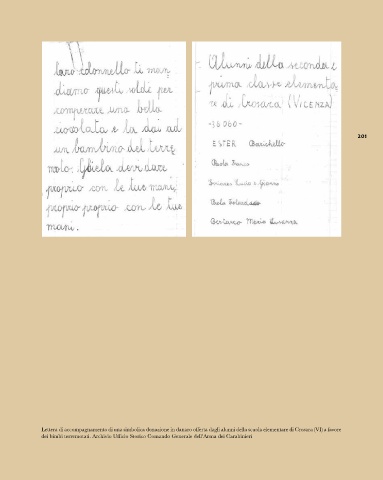 Caro colonnello ti man
diamo questi soldi per
comperare una bella
cioccolata e la dai ad
un bambino del terre
moto; Gliela devi dare
proprio con le tue mani,
proprio proprio con le tue
mani.
Alunni della seconda e
prima classe elementa
re di Crosara (VICENZA)
-36060-
ESTER Barichello
Paola
Bertacco Maria Luserna
201
Lettera di accompagnamento di una simbolica donazione in danaro offerta dagli alunni della scuola elementare di Crosara (VI) a favore
dei bimbi terremotati. Archivio Ufficio Storico Comando Generale dell'Arma dei Carabinieri